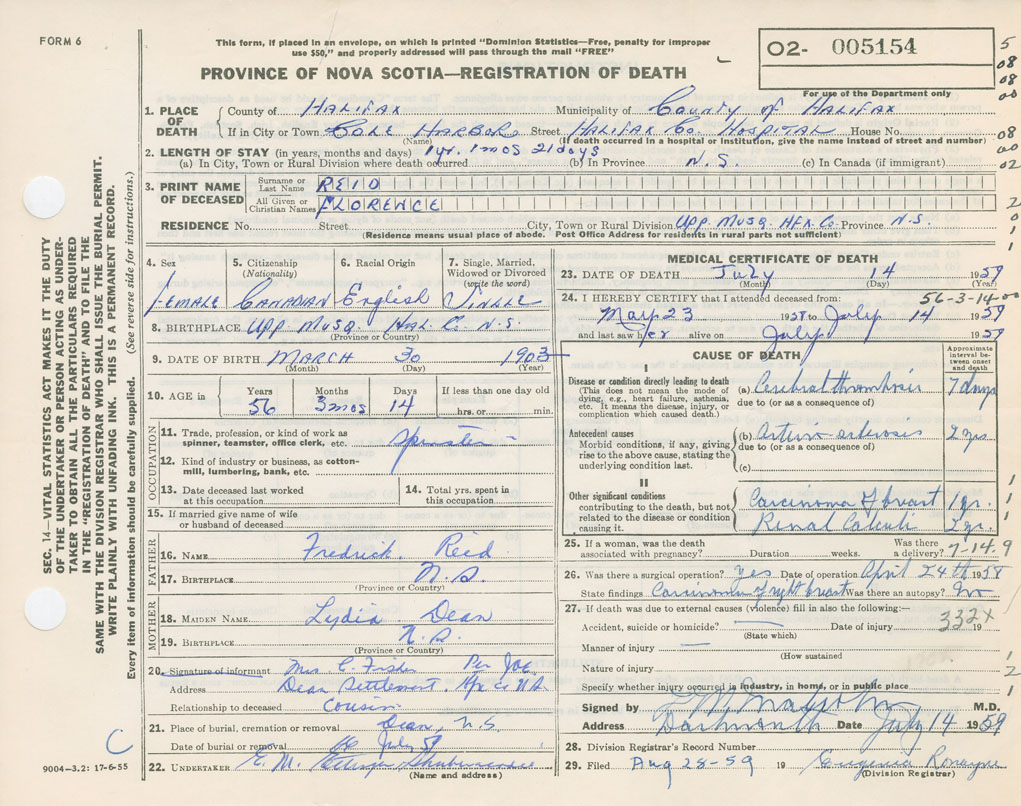 FORM 6
This form, if placed in an envelope, on which is printed "Dominion Statistics—Free, penalty for improper
use $50," and properly addressed will pass through the mail "FREE"
PROVINCE OF NOVA SCOTIA—REGISTRATION OF DEATH
O2- 005154
For use of the Department only
1. PLACE OF DEATH County of HALIFAX Municipality of County of HALIFAX
If in City or Town COLE HARBOR Street HALIFAX Co. HOSPITAL House No.
(Name) (If death occurred in a hospital or institution, give the name instead of street and number)
2. LENGTH OF STAY (in years, months and days) 1 yr. 1 mos 21 days
(a) In City, Town or Rural Division where death occurred (b) In Province N.S. (c) In Canada (if immigrant)
3. PRINT NAME OF DECEASED Surname or Last Name REID
All Given or Christian Names FLORENCE
RESIDENCE No. Street City, Town or Rural Division Upp. Musq. Hfx. Co. Province N.S.
(Residence means usual place of abode. Post Office Address for residents in rural parts not sufficient)
4. Sex 5. Citizenship (Nationality) 6. Racial Origin 7. Single, Married, Widowed or Divorced (write the word)
Female Canadian English Single
8. BIRTHPLACE Upp. Musq. Hal. Co. N.S.
(Province or Country)
9. DATE OF BIRTH MARCH 30 1903
(Month) (Day) (Year)
10. AGE in Years Months Days If less than one day old
56 3 mos 14 hrs. or min.
OCCUPATION
11. Trade, profession, or kind of work as spinner, teamster, office clerk, etc. Spinster
12. Kind of industry or business, as cotton-mill, lumbering, bank, etc.
13. Date deceased last worked at this occupation
14. Total yrs. spent in this occupation
15. If married give name of wife or husband of deceased
FATHER
16. NAME Fredrick Reid
17. BIRTHPLACE N.S.
(Province or Country)
MOTHER
18. MAIDEN NAME Lydia Dean
19. BIRTHPLACE N.S.
(Province or Country)
20. Signature of informant Mrs C. Per
Address Dean Settlement, Hfx Co N.S.
Relationship to deceased cousin
21. Place of burial, cremation or removal Dean, N.S.
Date of burial or removal 16 July 59
22. UNDERTAKER E. M.
(Name and address)
MEDICAL CERTIFICATE OF DEATH
23. DATE OF DEATH July 14 1959
(Month) (Day) (Year)
56-3-14-00
24. I HEREBY CERTIFY that I attended deceased from:
23 1958 to July 14 1959
and last saw her alive on July 1959
CAUSE OF DEATH
Approximate interval between onset and death
I
Disease or condition directly leading to death
(This does not mean the mode of dying, e.g., heart failure, asthenia, etc. It means the disease, injury, or complication which caused death.)
(a) Cerebral thrombosis 7 days
due to (or as a consequence of)
Antecedent causes
Morbid conditions, if any, giving rise to the above cause, stating the underlying condition last.
(b) Arterio sclerosis 2 yrs
due to (or as a consequence of)
(c)
II
Other significant conditions contributing to the death, but not related to the disease or condition causing it.
Carcinoma of breast 1 yr.
Renal Calculi 2 yr.
25. If a woman, was the death associated with pregnancy? Duration weeks. Was there a delivery?
7-14.9
26. Was there a surgical operation? Yes Date of operation April 24th 1958
State findings Carcinoma of right breast Was there an autopsy? No
27. If death was due to external causes (violence) fill in also the following:—
Accident, suicide or homicide? Date of injury 19
332X
(State which)
Manner of injury
(How sustained
Nature of injury
Specify whether injury occurred in industry, in home, or in public place
Signed by M.D.
Address Dartmouth Date July 14 1959
28. Division Registrar's Record Number
29. Filed Aug 28-59 19 Eugenia
(Division Registrar)
SEC. 14—VITAL STATISTICS ACT MAKES IT THE DUTY
OF THE UNDERTAKER OR PERSON ACTING AS UNDER-
TAKER TO OBTAIN ALL THE PARTICULARS REQUIRED
IN THE "REGISTRATION OF DEATH" AND TO FILE THE
SAME WITH THE DIVISION REGISTRAR WHO SHALL ISSUE THE BURIAL PERMIT.
WRITE PLAINLY WITH UNFADING INK. THIS IS A PERMANENT RECORD.
Every item of information should be carefully supplied. (See reverse side for instructions.)
C
9004-3.2: 17-6-55
5
08
08
00
08
00
02
2
0
1
1
1
1
1
1
2
1